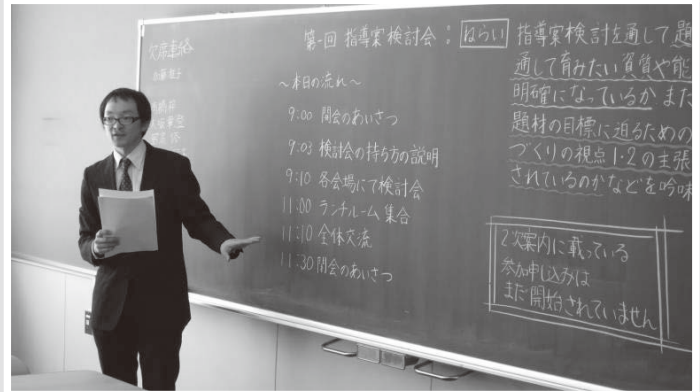 欠席連絡
第一回 指導案検討会: ねらい
指導案検討を通して題
通して育みたい資質や能
明確になっているか また
題材の目標に迫るための
づくりの視点1・2の主張
されているのかなどを吟味
～本日の流れ～
9:00 開会のあいさつ
9:03 検討会の持ち方の説明
9:10 各会場にて検討会
11:00 ランチルーム集合
11:10 全体交流
11:30 閉会のあいさつ
2次案内に載っている
参加申し込みは
まだ開始されていません